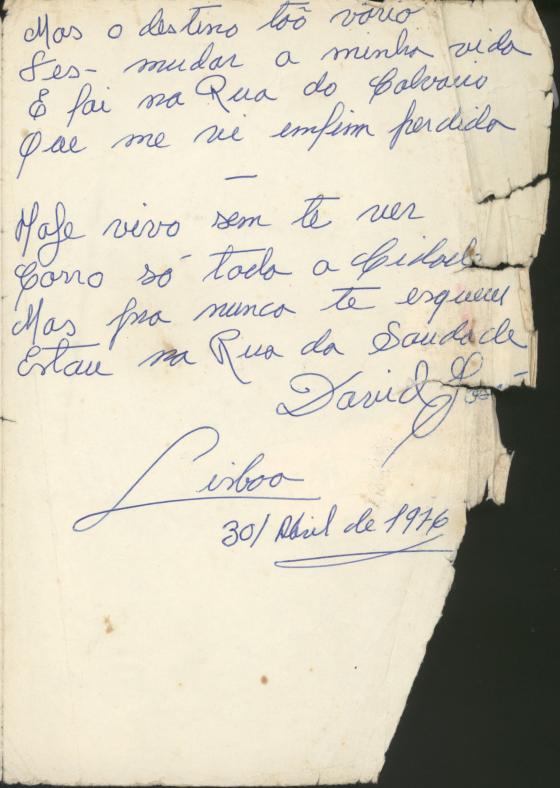 Mas o destino tão vário
Fes- mudar a minha vida
E foi na Rua do Calvario
Que me vi emfim perdida
—
Hoje vivo sem te ver
Corro só toda a Cidade
Mas pra nunca te esquecer
Estou na Rua da Saudade
David José
Lisboa
30/ Abril de 1976